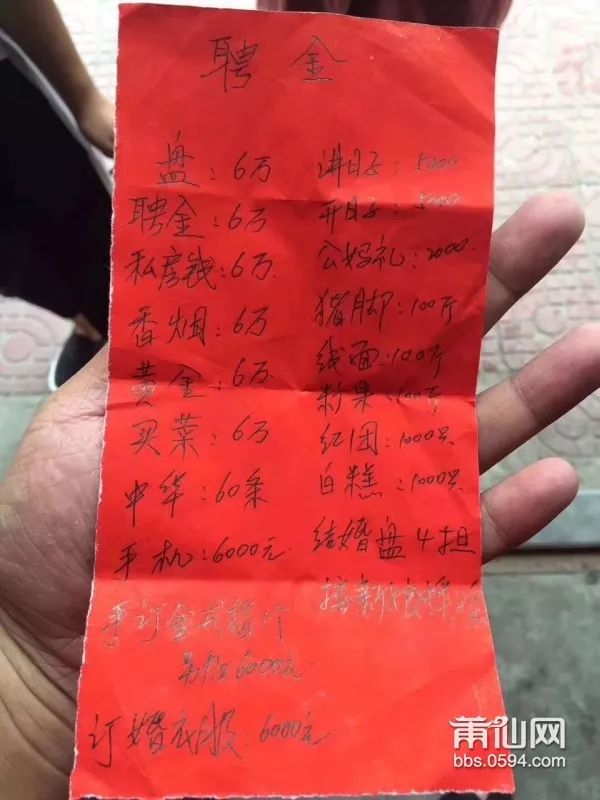 聘金
盘：6万
聘金：6万
私房钱：6万
香烟：6万
黄金：6万
买菜：6万
中华：60条
手机：6000元
订
6000元
订婚衣服：6000元
讲日子：5000
开日子：5000
公妈礼：2000
猪脚：100斤
线面：100斤
粉果：100斤
红团：1000只
白糕：1000只
结婚盘4担
接亲
莆仙网
bbs.0594.com